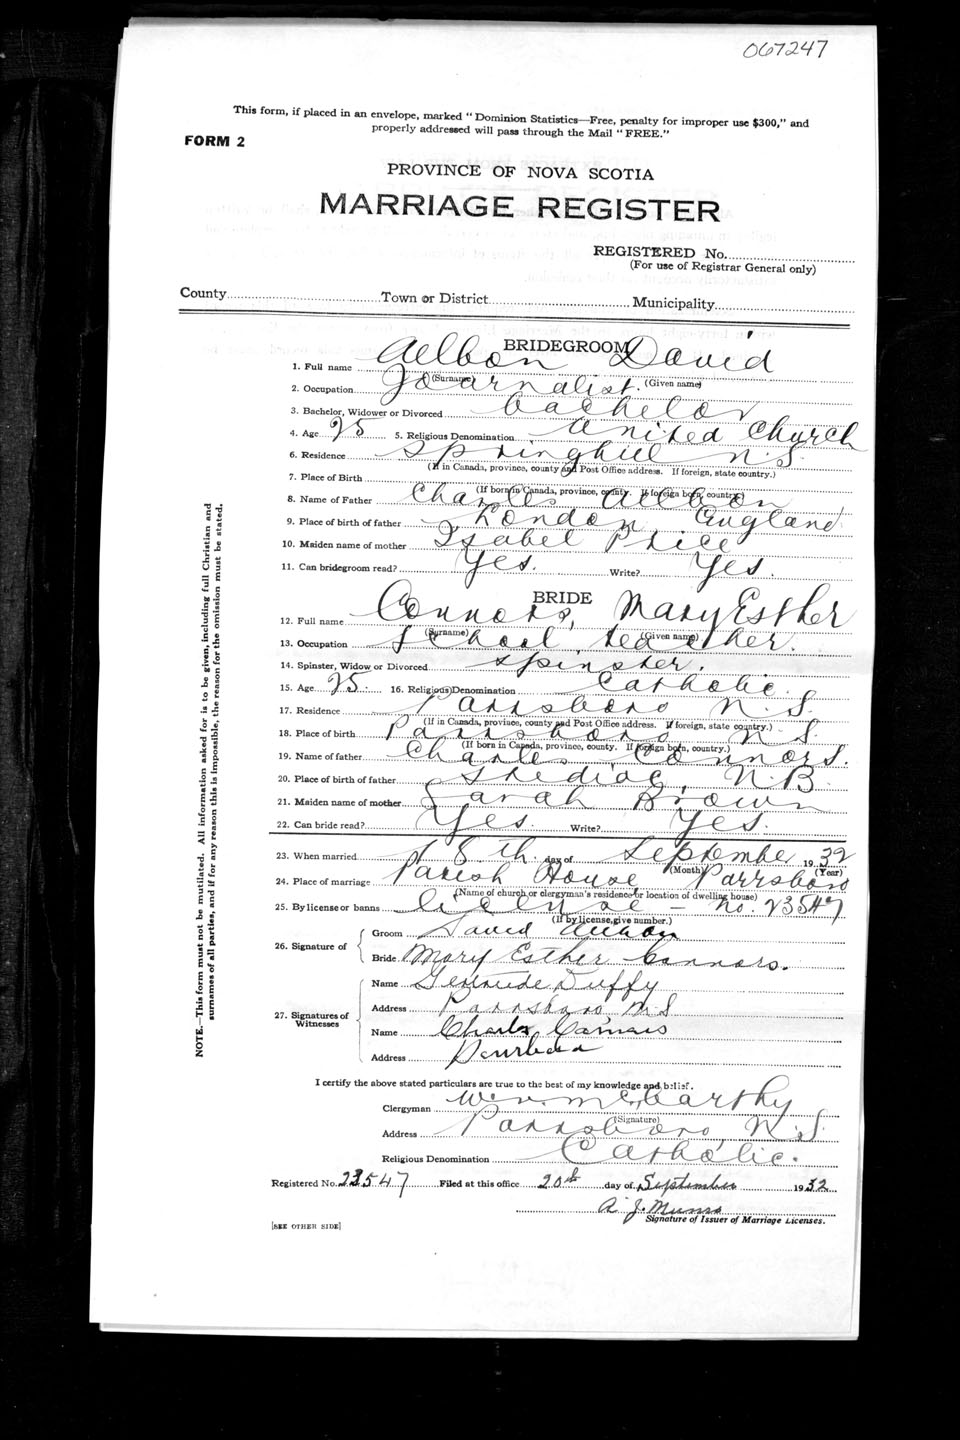 067247
This form, if placed in an envelope, marked "Dominion Statistics—Free, penalty for improper use $300," and
properly addressed will pass through the Mail "FREE."
FORM 2
PROVINCE OF NOVA SCOTIA
MARRIAGE REGISTER
REGISTERED No.
(For use of Registrar General only)
County Town or District Municipality
BRIDEGROOM
1. Full name Aelbon David
(Surname) (Given name)
2. Occupation Journalist.
3. Bachelor, Widower or Divorced bachelor
4. Age 25 5. Religious Denomination United Church
6. Residence Springhill N.S.
(If in Canada, province, county and Post Office address. If foreign, state country.)
7. Place of Birth
(If born in Canada, province, county. If foreign born, country)
8. Name of Father Charles Aelbon
9. Place of birth of father London England
10. Maiden name of mother Isabel Price
11. Can bridegroom read? Yes. Write? Yes.
BRIDE
12. Full name Connors, Mary Esther
(Surname) (Given name)
13. Occupation School teacher.
14. Spinster, Widow or Divorced Spinster.
15. Age 25 16. Religious Denomination Catholic.
17. Residence Parrsboro N.S.
(If in Canada, province, county and Post Office address. If foreign, state country.)
18. Place of birth Parrsboro N.S.
(If born in Canada, province, county. If foreign born, country.)
19. Name of father Charles Connors.
20. Place of birth of father Shediac, N.B.
21. Maiden name of mother Sarah Brown
22. Can bride read? Yes. Write? Yes.
23. When married 18th. day of September 1932
(Month) (Year)
24. Place of marriage Parish House Parrsboro
(Name of church or clergyman's residence or location of dwelling house)
25. By license or banns license - No. 23547
(If by license, give number.)
26. Signature of
Groom David Aelbon
Bride Mary Esther Connors.
27. Signatures of Witnesses
Name Gertrude Duffy
Address Parrsboro, N.S
Name Charles Connors
Address
I certify the above stated particulars are true to the best of my knowledge and belief.
Clergyman McCarthy
(Signature)
Address Parrsboro, N.S.
Religious Denomination Catholic.
Registered No. 23547 Filed at this office 20th day of September 1932
A. J. Munro
Signature of Issuer of Marriage Licenses.
[SEE OTHER SIDE]
NOTE.—This form must not be mutilated. All information asked for is to be given, including full Christian and
surnames of all parties, and if for any reason this is impossible, the reason for the omission must be stated.